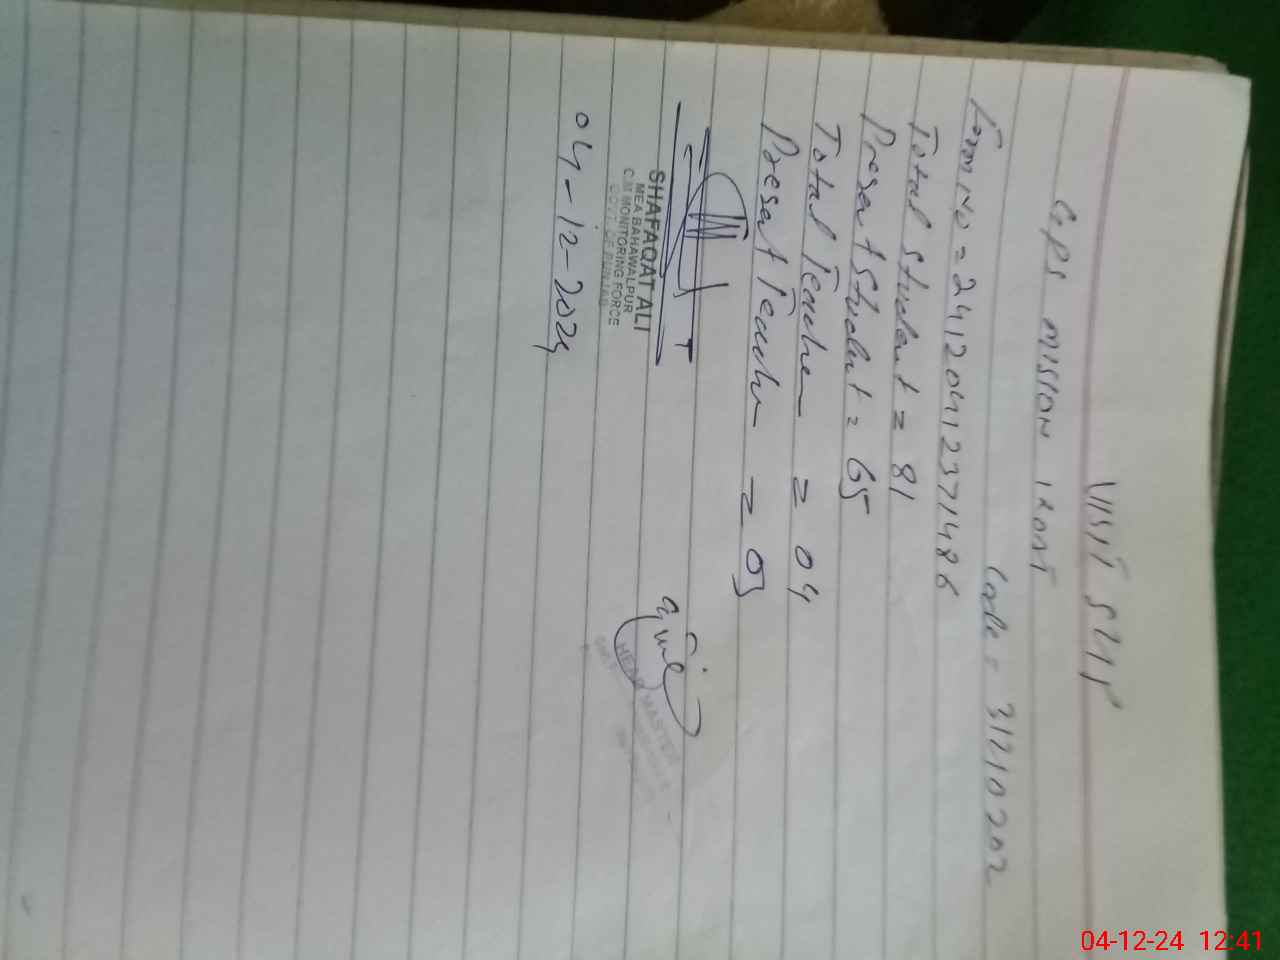 VISIT SLIP
GPS MISION
Code = 31210202
Form No = 24120412371486
Total Student = 81
Present Student = 65
Total Teacher = 04
Present Teacher = 03
SHAFAQAT ALI
MEA BAHAWALPUR
C.M MONITORING FORCE
GOVT. OF PUNJAB
HEAD MASTER
04-12-2024
04-12-24 12:41